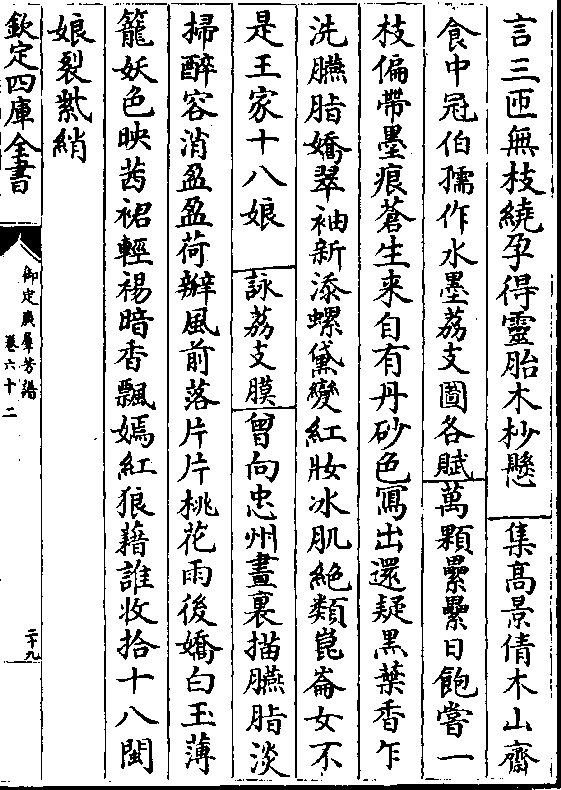 言三匝無枝繞孕得靈胎木杪懸　集髙景倩木山齋
食中冠伯孺作水墨荔支圖各賦萬顆纍纍日飽嘗一
枝偏帶墨痕蒼生来自有丹砂色寫出還疑黒葉香乍
洗臙脂嬌翠袖新添螺黛變紅妝冰肌絶類崑崙女不
是王家十八娘　詠荔支膜　曾向忠州畫裏描臙脂淡
掃醉容消盈盈荷瓣風前落片片桃花雨後嬌白玉薄
籠妖色映茜裙輕裼暗香飄嫣紅狼藉誰收拾十八閩
娘裂紫綃
欽定四庫全書
御定廣羣芳譜
卷六十二
二十九